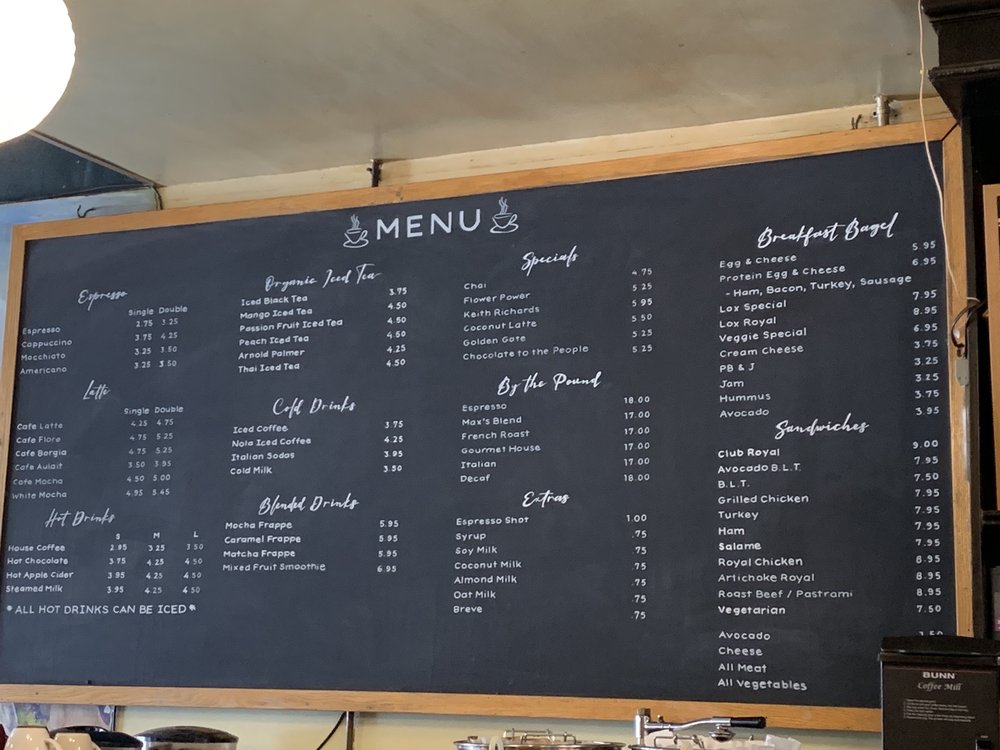 MENU
Espresso
Single Double
Espresso 2.75 3.25
Cappuccino 3.75 4.25
Macchiato 3.25 3.50
Americano 3.25 3.50
Latte
Single Double
Cafe Latte 4.25 4.75
Cafe Flore 4.75 5.25
Cafe Borgia 4.75 5.25
Cafe Aulait 3.50 3.95
Cafe Mocha 4.50 5.00
White Mocha 4.95 5.45
Hot Drinks
S M L
House Coffee 2.95 3.25 3.50
Hot Chocolate 3.75 4.25 4.50
Hot Apple Cider 3.95 4.25 4.50
Steamed Milk 3.95 4.25 4.50
*ALL HOT DRINKS CAN BE ICED*
Organic Iced Tea
Iced Black Tea 3.75
Mango Iced Tea 4.50
Passion Fruit Iced Tea 4.50
Peach Iced Tea 4.50
Arnold Palmer 4.25
Thai Iced Tea 4.50
Cold Drinks
Iced Coffee 3.75
Nola Iced Coffee 4.25
Italian Sodas 3.95
Cold Milk 3.50
Blended Drinks
Mocha Frappe 5.95
Caramel Frappe 5.95
Matcha Frappe 5.95
Mixed Fruit Smoothie 6.95
Specials
Chai 4.75
Flower Power 5.25
Keith Richards 5.95
Coconut Latte 5.50
Golden Gate 5.25
Chocolate to the People 5.25
By the Pound
Espresso 18.00
Max's Blend 17.00
French Roast 17.00
Gourmet House 17.00
Italian 17.00
Decaf 18.00
Extras
Espresso Shot 1.00
Syrup .75
Soy Milk .75
Coconut Milk .75
Almond Milk .75
Oat Milk .75
Breve .75
Breakfast Bagel
Egg & Cheese 5.95
Protein Egg & Cheese 6.95
- Ham, Bacon, Turkey, Sausage
Lox Special 7.95
Lox Royal 8.95
Veggie Special 6.95
Cream Cheese 3.75
PB & J 3.25
Jam 3.25
Hummus 3.75
Avocado 3.95
Sandwiches
Club Royal 9.00
Avocado B.L.T. 7.95
B.L.T. 7.50
Grilled Chicken 7.95
Turkey 7.95
Ham 7.95
Salame 7.95
Royal Chicken 8.95
Artichoke Royal 8.95
Roast Beef / Pastrami 8.95
Vegetarian 7.50
Avocado
Cheese
All Meat
All Vegetables
BUNN
Coffee Mill